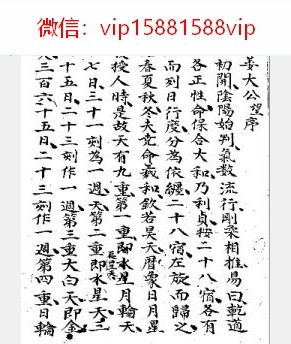 微信：vip15881588vip
姜大公望序
初開陰陽始判氣数流行剛柔相推易曰乾道
各正性命保合大和乃利貞按二十八宿各有
而到日行度分為依纒二十八宿左旋而歸之
春夏秋冬夫尭命羲和欽若昊天暦象日月星
授人時是故天有九重第一重即水星月輪天
七日三十一刻為一週天第二重即水星天三
十五日二十三刻作一週第三重大白天即金
三百六十五日二十三刻作一週第四重日輪